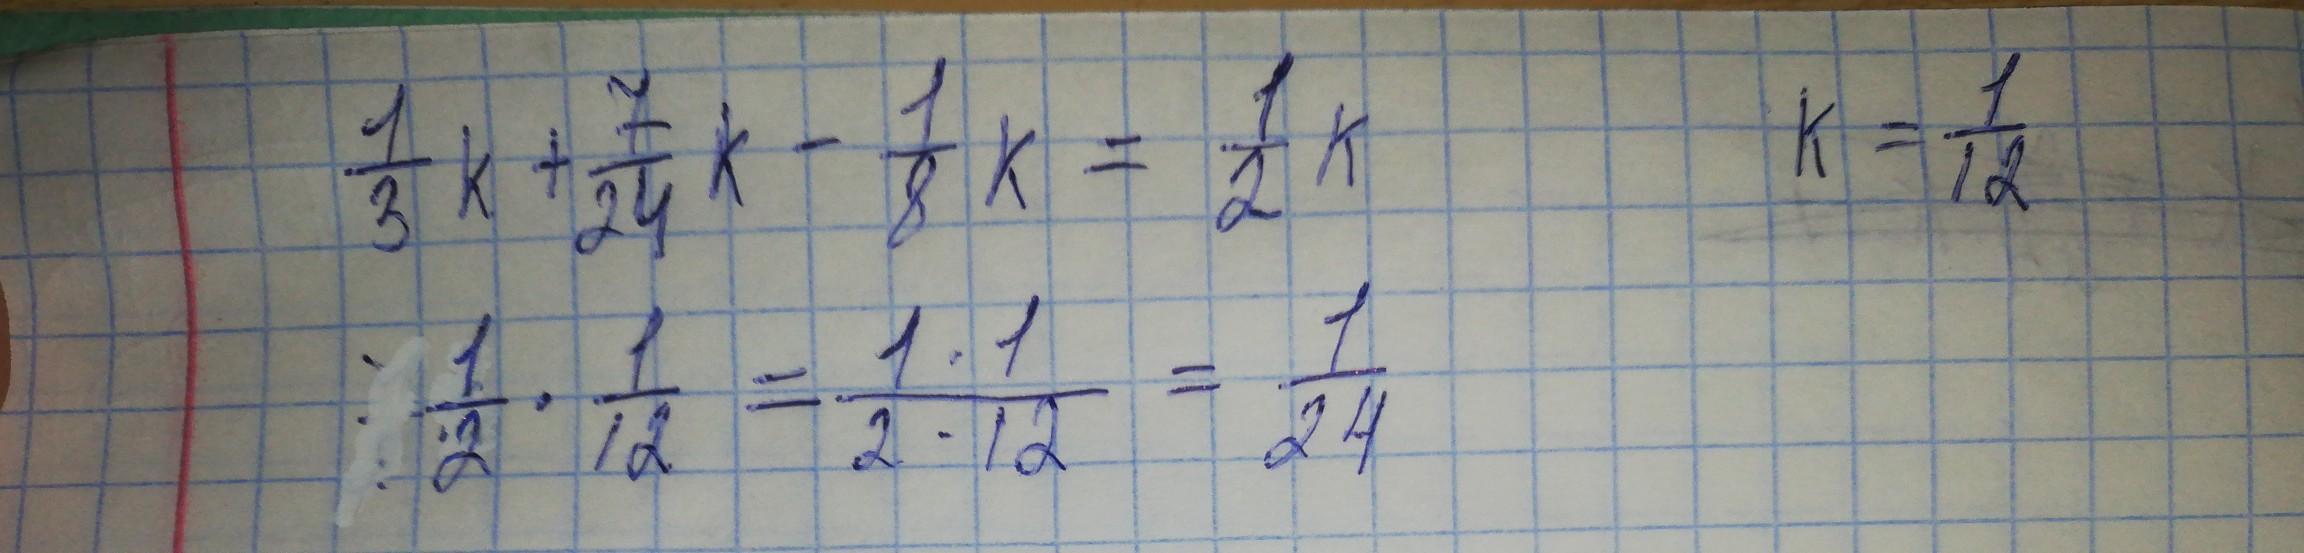 1/3 k + 7/24 k - 1/8 k = 1/2 k    k = 1/12
1/2 · 1/12 = 1·1/2·12 = 1/24